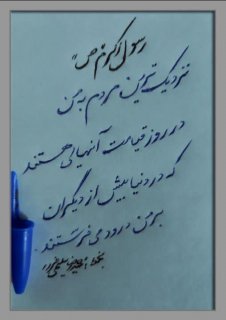 رسول اکرم ص"
نزدیک ترین مردم به من
در روز قیامت آنهایی هستند
که در دنیا بیش از دیگران
بر من درود می فرستند.
بخط: